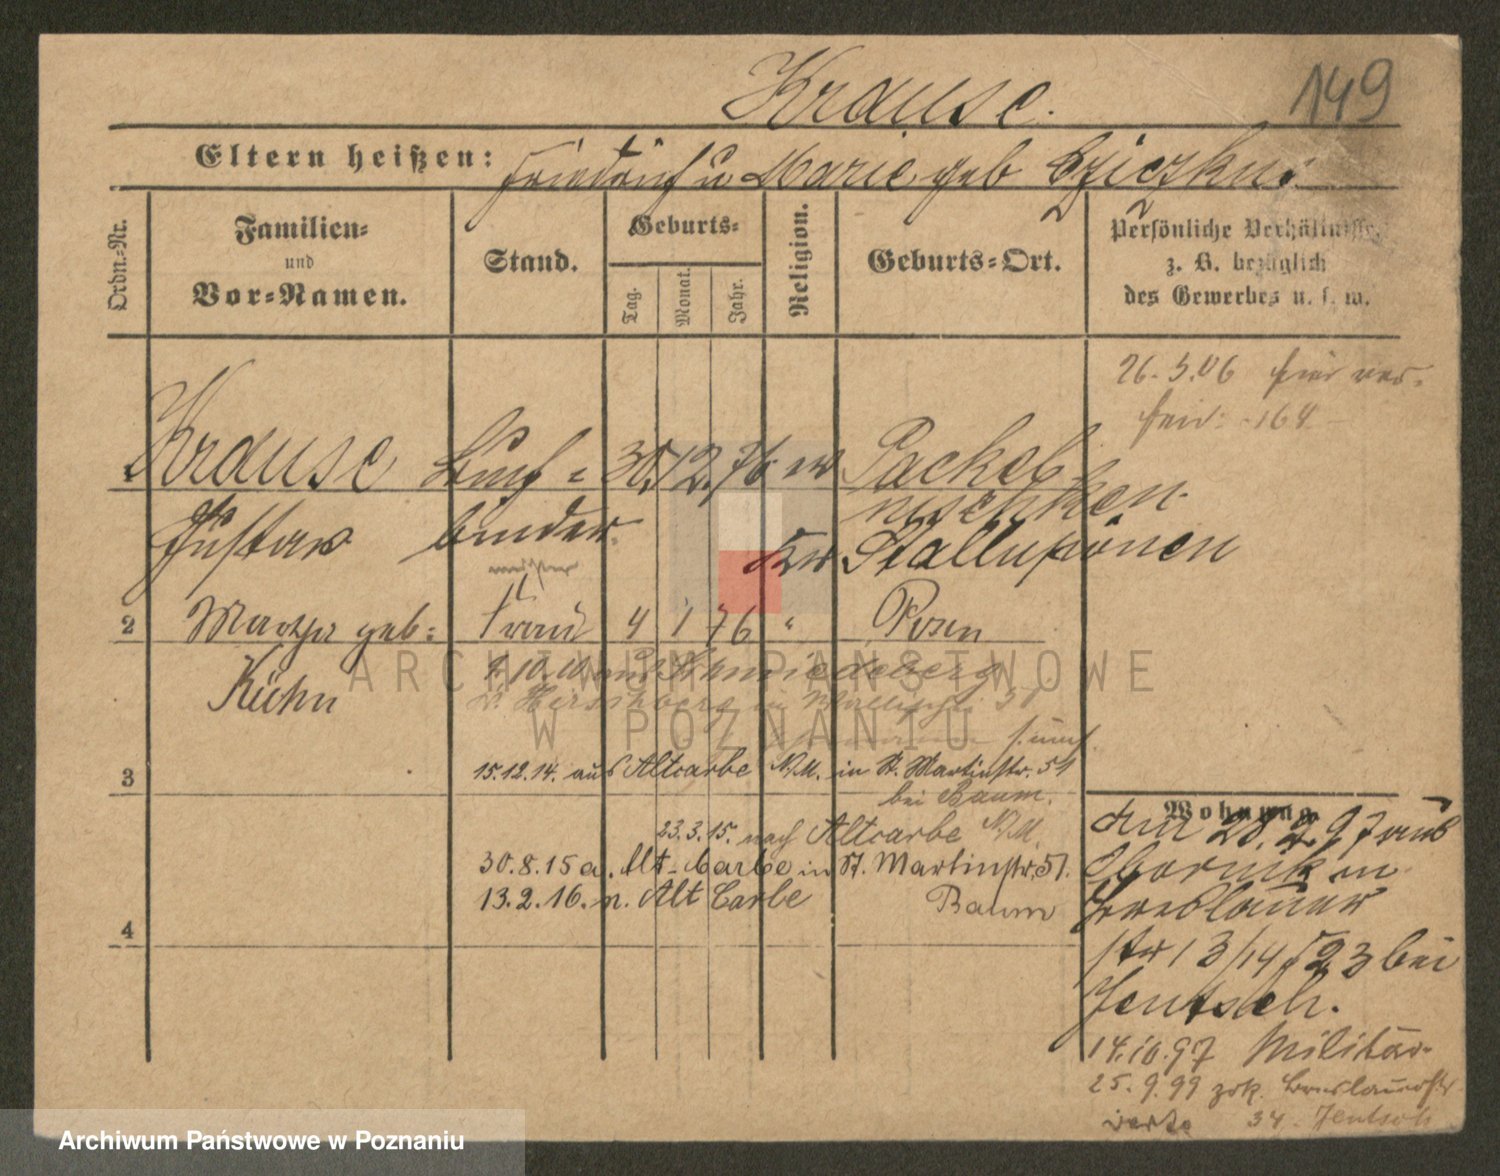 Krause.
149
Eltern heißen: Friedrich u Marie geb
Ordn.-Nr.
Familien- und Vor-Namen.
Stand.
Geburts-
Tag.
Monat.
Jahr.
Religion.
Geburts-Ort.
Persönliche Verhältnisse,
z. B. bezüglich
des Gewerbes u. s. w.
26.3.06 hier ver-
heir: 164
Krause Buch= 30. 12. 76 ev Packeb
nischken
Gustav binder Kr Stallupönen
2 Martha geb: Frau 4 1 76 " Posen
Kühn
Schmiedeberg
Hirschberg in 31
3 15.12.14. aus Altcarbe N/M. in St. Martinstr. 51
bei Baum.
23.3.15. nach Altcarbe N/M.
30.8.15 a. Alt-Carbe in St. Martinstr. 51.
13.2.16. n. Alt Carbe Baum
4
Wohnung
den 28.2.97 aus
Obornik in
Breslauer
str 13/14 bei
Jentsch.
14.10.97 Militär
25.9.99 zrk. Breslauerstr
34. Jentsch
ARCHIWUM PAŃSTWOWE
W POZNANIU
Archiwum Państwowe w Poznaniu